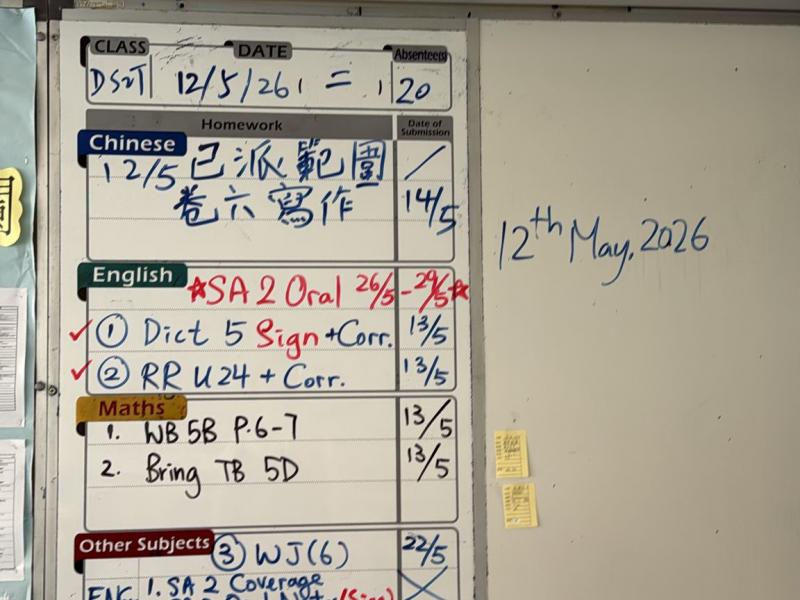 CLASS DATE Absentee(s)
12/5/26 = 20
Homework Date of Submission
Chinese
12/5 已派範圍 /
卷六寫作 14/5
12th May, 2026
English
☆SA 2 Oral 26/5 - 29/5☆
✓ ① Dict 5 Sign + Corr. 13/5
✓ ② RR U24 + Corr. 13/5
Maths
1. WB 5B P.6-7 13/5
2. Bring TB 5D 13/5
Other Subjects ③ WJ(6) 22/5
ENG 1. SA 2 Coverage